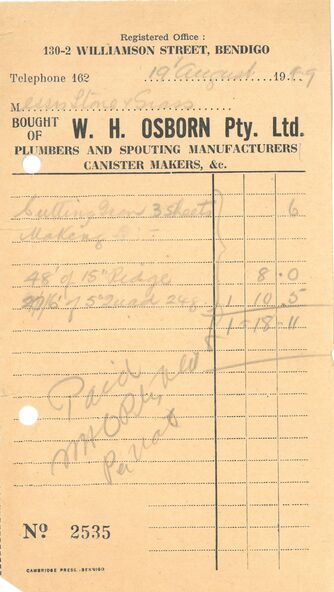 Registered Office :
130-2 WILLIAMSON STREET, BENDIGO
Telephone 162 19' August 19
M
BOUGHT OF W. H. OSBORN Pty. Ltd.
PLUMBERS AND SPOUTING MANUFACTURERS
CANISTER MAKERS, &c.
Cutting Iron 3 sheets 6
Making
48' of 15" Ridge 8 - 0
of 5" Quad 24g 1 10 5
1 - 18 - 11
Paid
W H Osborn
Per
No 2535
CAMBRIDGE PRESS.-BENDIGO